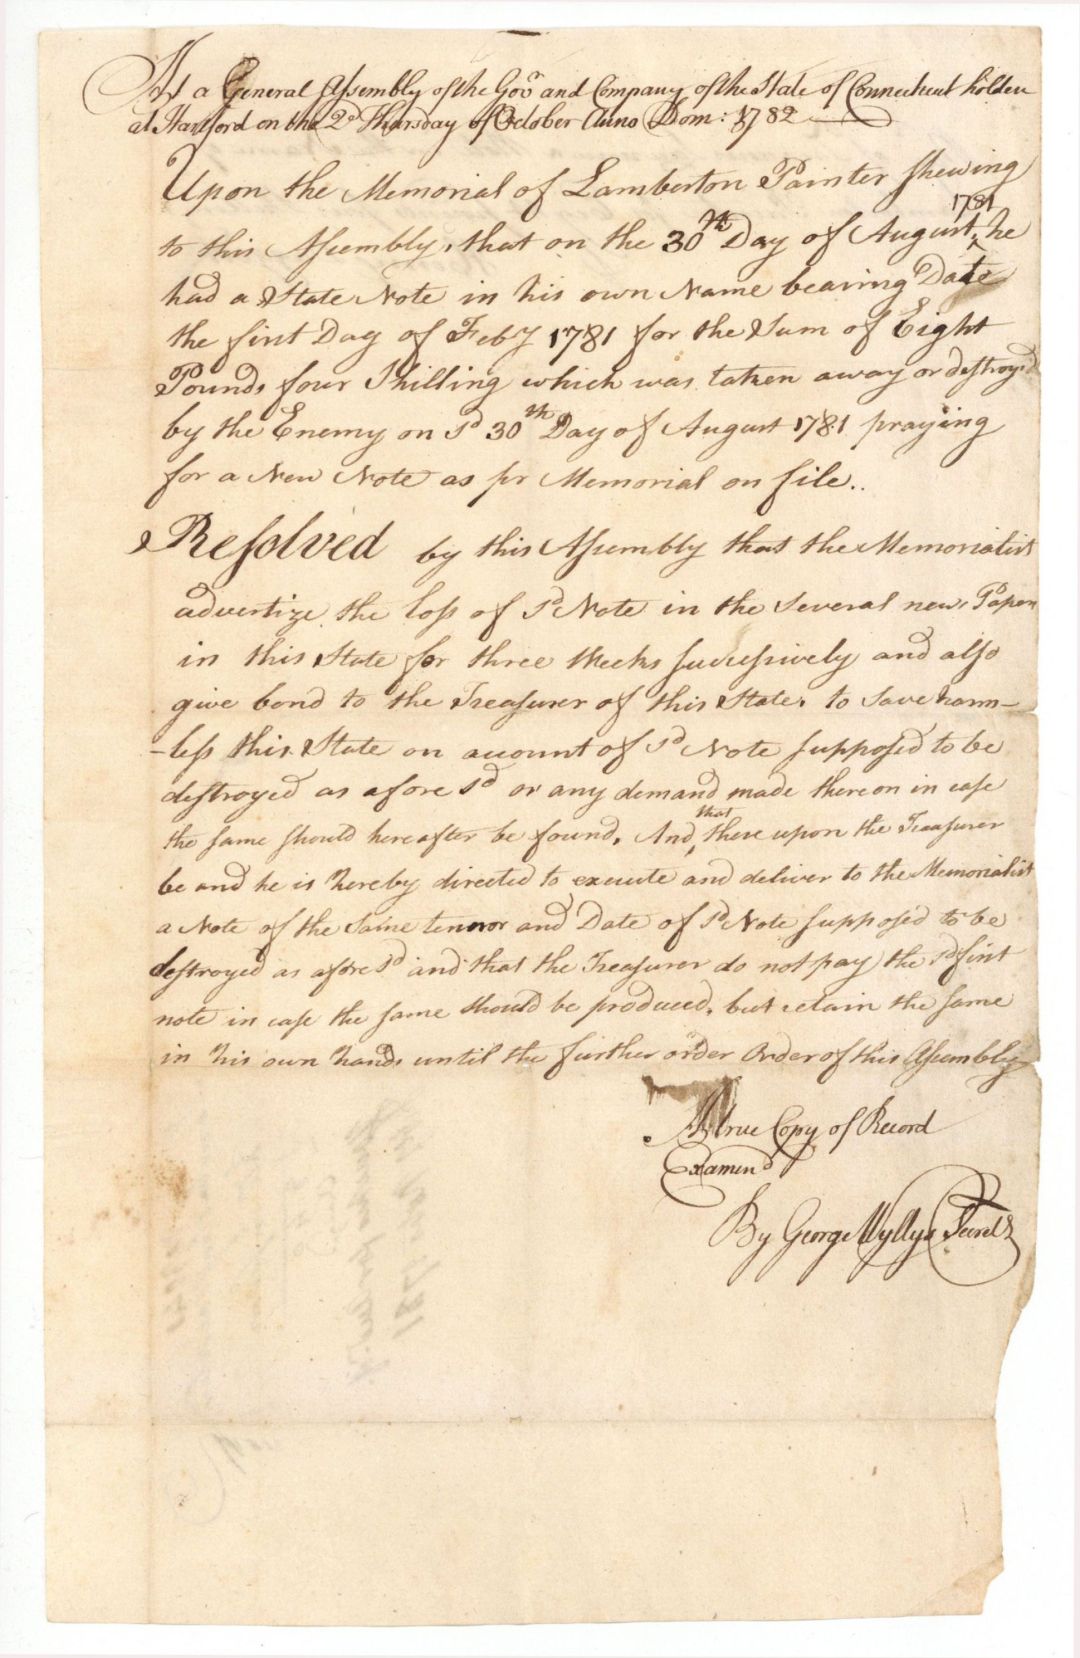 At a General Assembly of the Govr and Company of the State of Connecticut holden
at Hartford on the 2d Thursday of October Anno Dom: 1782
Upon the Memorial of Lamberton Painter shewing
to this Assembly, that on the 30th Day of August 1781 he
had a State Note in his own Name bearing Date
the first Day of Feby 1781 for the Sum of Eight
Pounds four Shilling which was taken away or destroy'd
by the Enemy on sd 30th Day of August 1781 praying
for a New Note as pr Memorial on file..
Resolved by this Assembly that the Memorialist
advertize the loss of sd Note in the several news Papers
in this State for three Weeks successively and also
give bond to the Treasurer of this State, to save harm–
–less this State on account of sd Note supposed to be
destroyed as afore sd or any demand made thereon in case
the same should hereafter be found, And that there upon the Treasurer
be and he is hereby directed to execute and deliver to the Memorialist
a Note of the same tenor and Date of sd Note suppos'd to be
destroyed as afore sd and that the Treasurer do not pay the sd first
note in case the same should be produced, but retain the same
in his own hands until the further order Order of this Assembly
A true Copy of Record
Examend
By George Wyllys Secretr